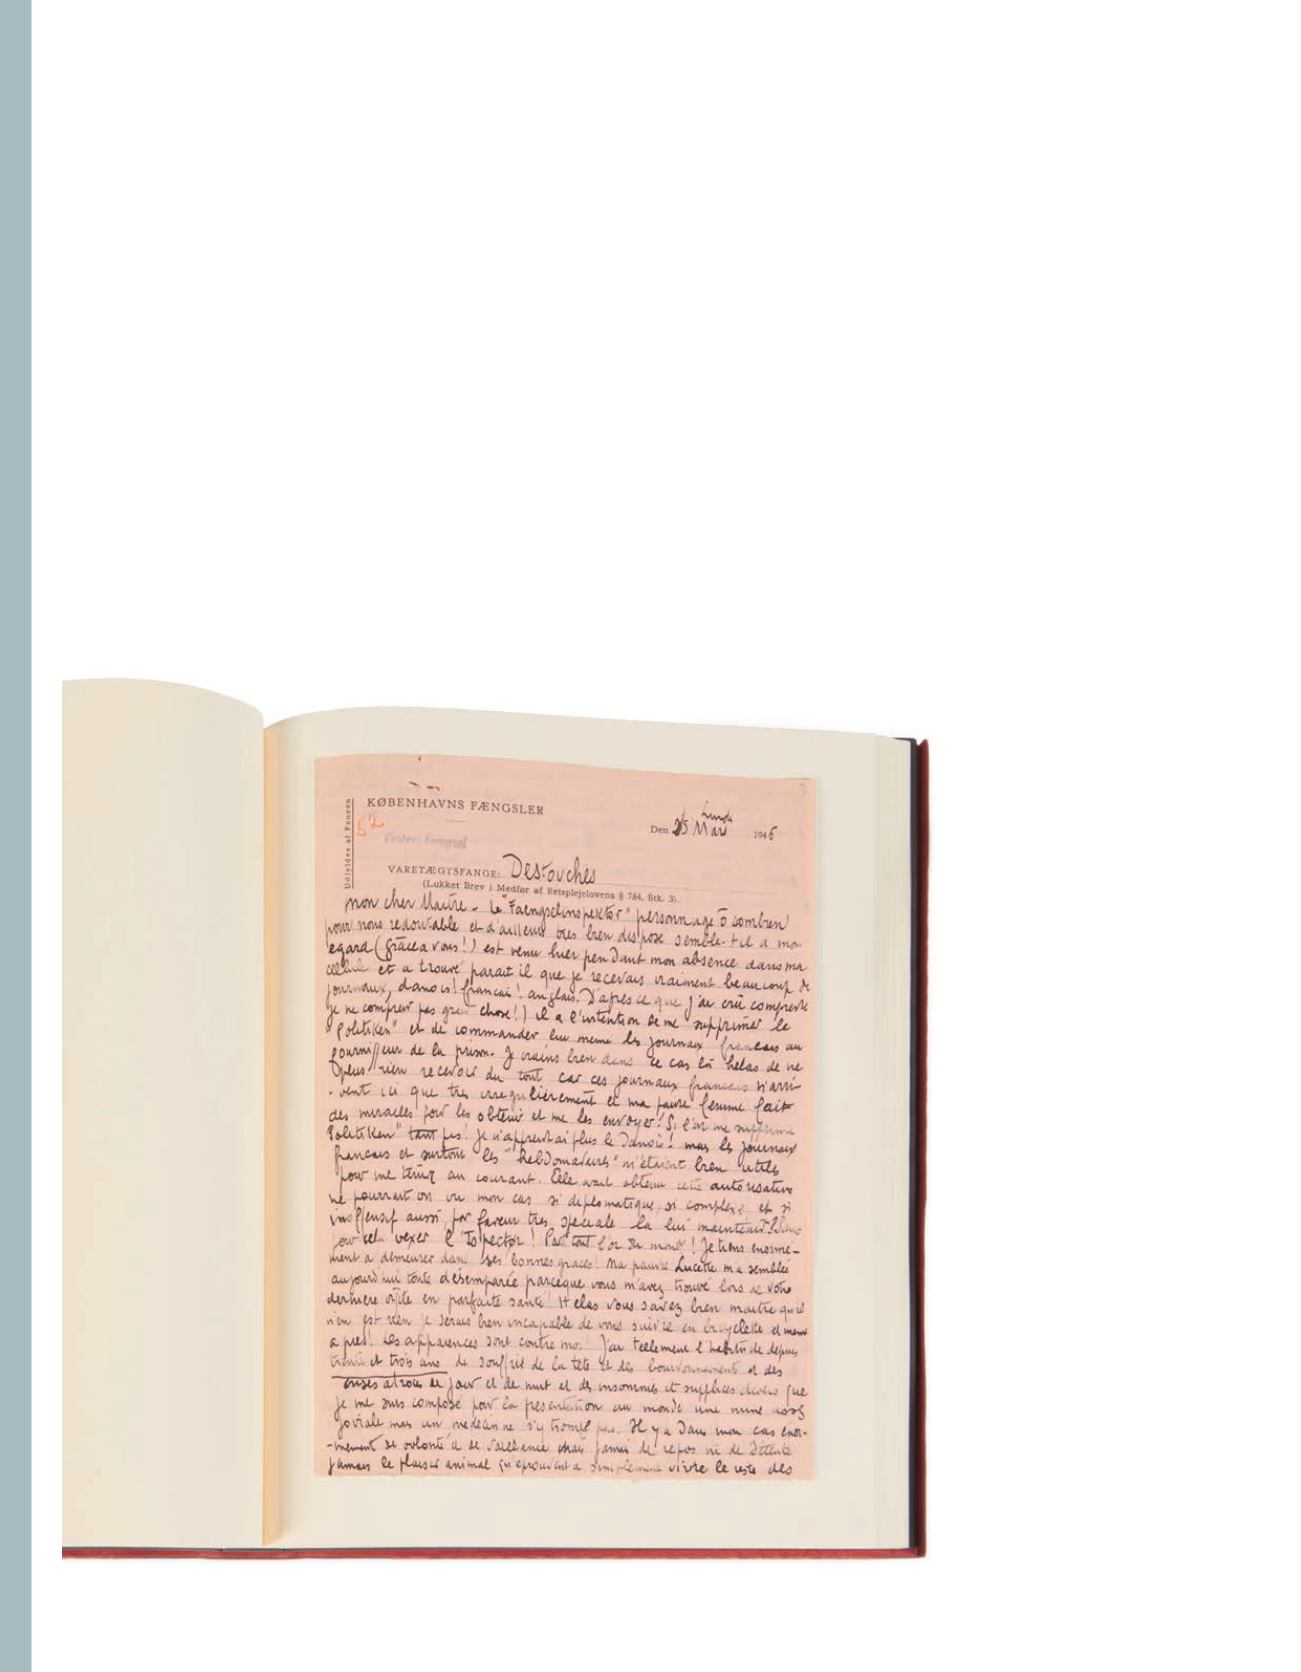 3
KØBENHAVNS FÆNGSLER
Udfyldes af Fangen
52
Vestre Fængsel
Lundi
Den 25 Mars 1946
VARETÆGTSFANGE: Destouches
(Lukket Brev i Medfør af Retsplejelovens § 784, Stk. 3).
Mon cher Maitre - Le "Faengselinspektör" personnage ô combien
pour nous redoutable et d'ailleurs très bien disposé semble-t-il a mon
egard (grâce a vous!) est venu hier pendant mon absence dans ma
cellule et a trouvé parait il que je recevais vraiment beaucoup de
journaux, danois! francais! anglais. D'apres ce que j'ai cru comprendre
(je ne comprend pas grand chose!) il a l'intention de me supprimer le
"Politiken" et de commander lui meme les journaux francais au
fournisseur de la prison. Je crains bien dans ce cas là helas de ne
plus rien recevoir du tout car ces journaux francais n'arri-
-vent ici que tres irregulièrement et ma pauvre femme fait
des miracles pour les obtenir et me les envoyer! Si l'on me supprime
"Politiken" tant pis! je n'apprendrai plus le Danois! mais les journaux
francais et surtout les "hebdomadaires" m'étaient bien utiles
pour me tenir au courant. Elle avait obtenu cette autorisation
ne pourrait on vu mon cas si diplomatique, si complexe, et si
inoffensif aussi, par faveur tres speciale la lui maintenir? Sans
pour cela vexer l'Inspector! Pas tout l'or du monde! Je tiens enorme-
ment a demeurer dans ses bonnes graces! Ma pauvre Lucette m'a semblée
aujourd'hui toute désemparée parceque vous m'avez trouvé lors de votre
derniere visite en parfaite santé! Helas vous savez bien maitre qu'il
n'en est rien je serais bien incapable de vous suivre en bicyclette et meme
a pied! Les apparences sont contre moi! J'ai tellement l'habitude depuis
trente et trois ans de souffrir de la tête et des bourdonnements et des
crises atroces de jour et de nuit et des insomnies et supplices divers que
je me suis composé pour la presentation au monde une mine assez
joviale mais un medecin ne s'y trompe pas. Il y a dans mon cas enor-
-mement de volonté et de vaillance mais jamais de repos ni de détente
jamais le plaisir animal qu'eprouvent a simplement vivre le reste des